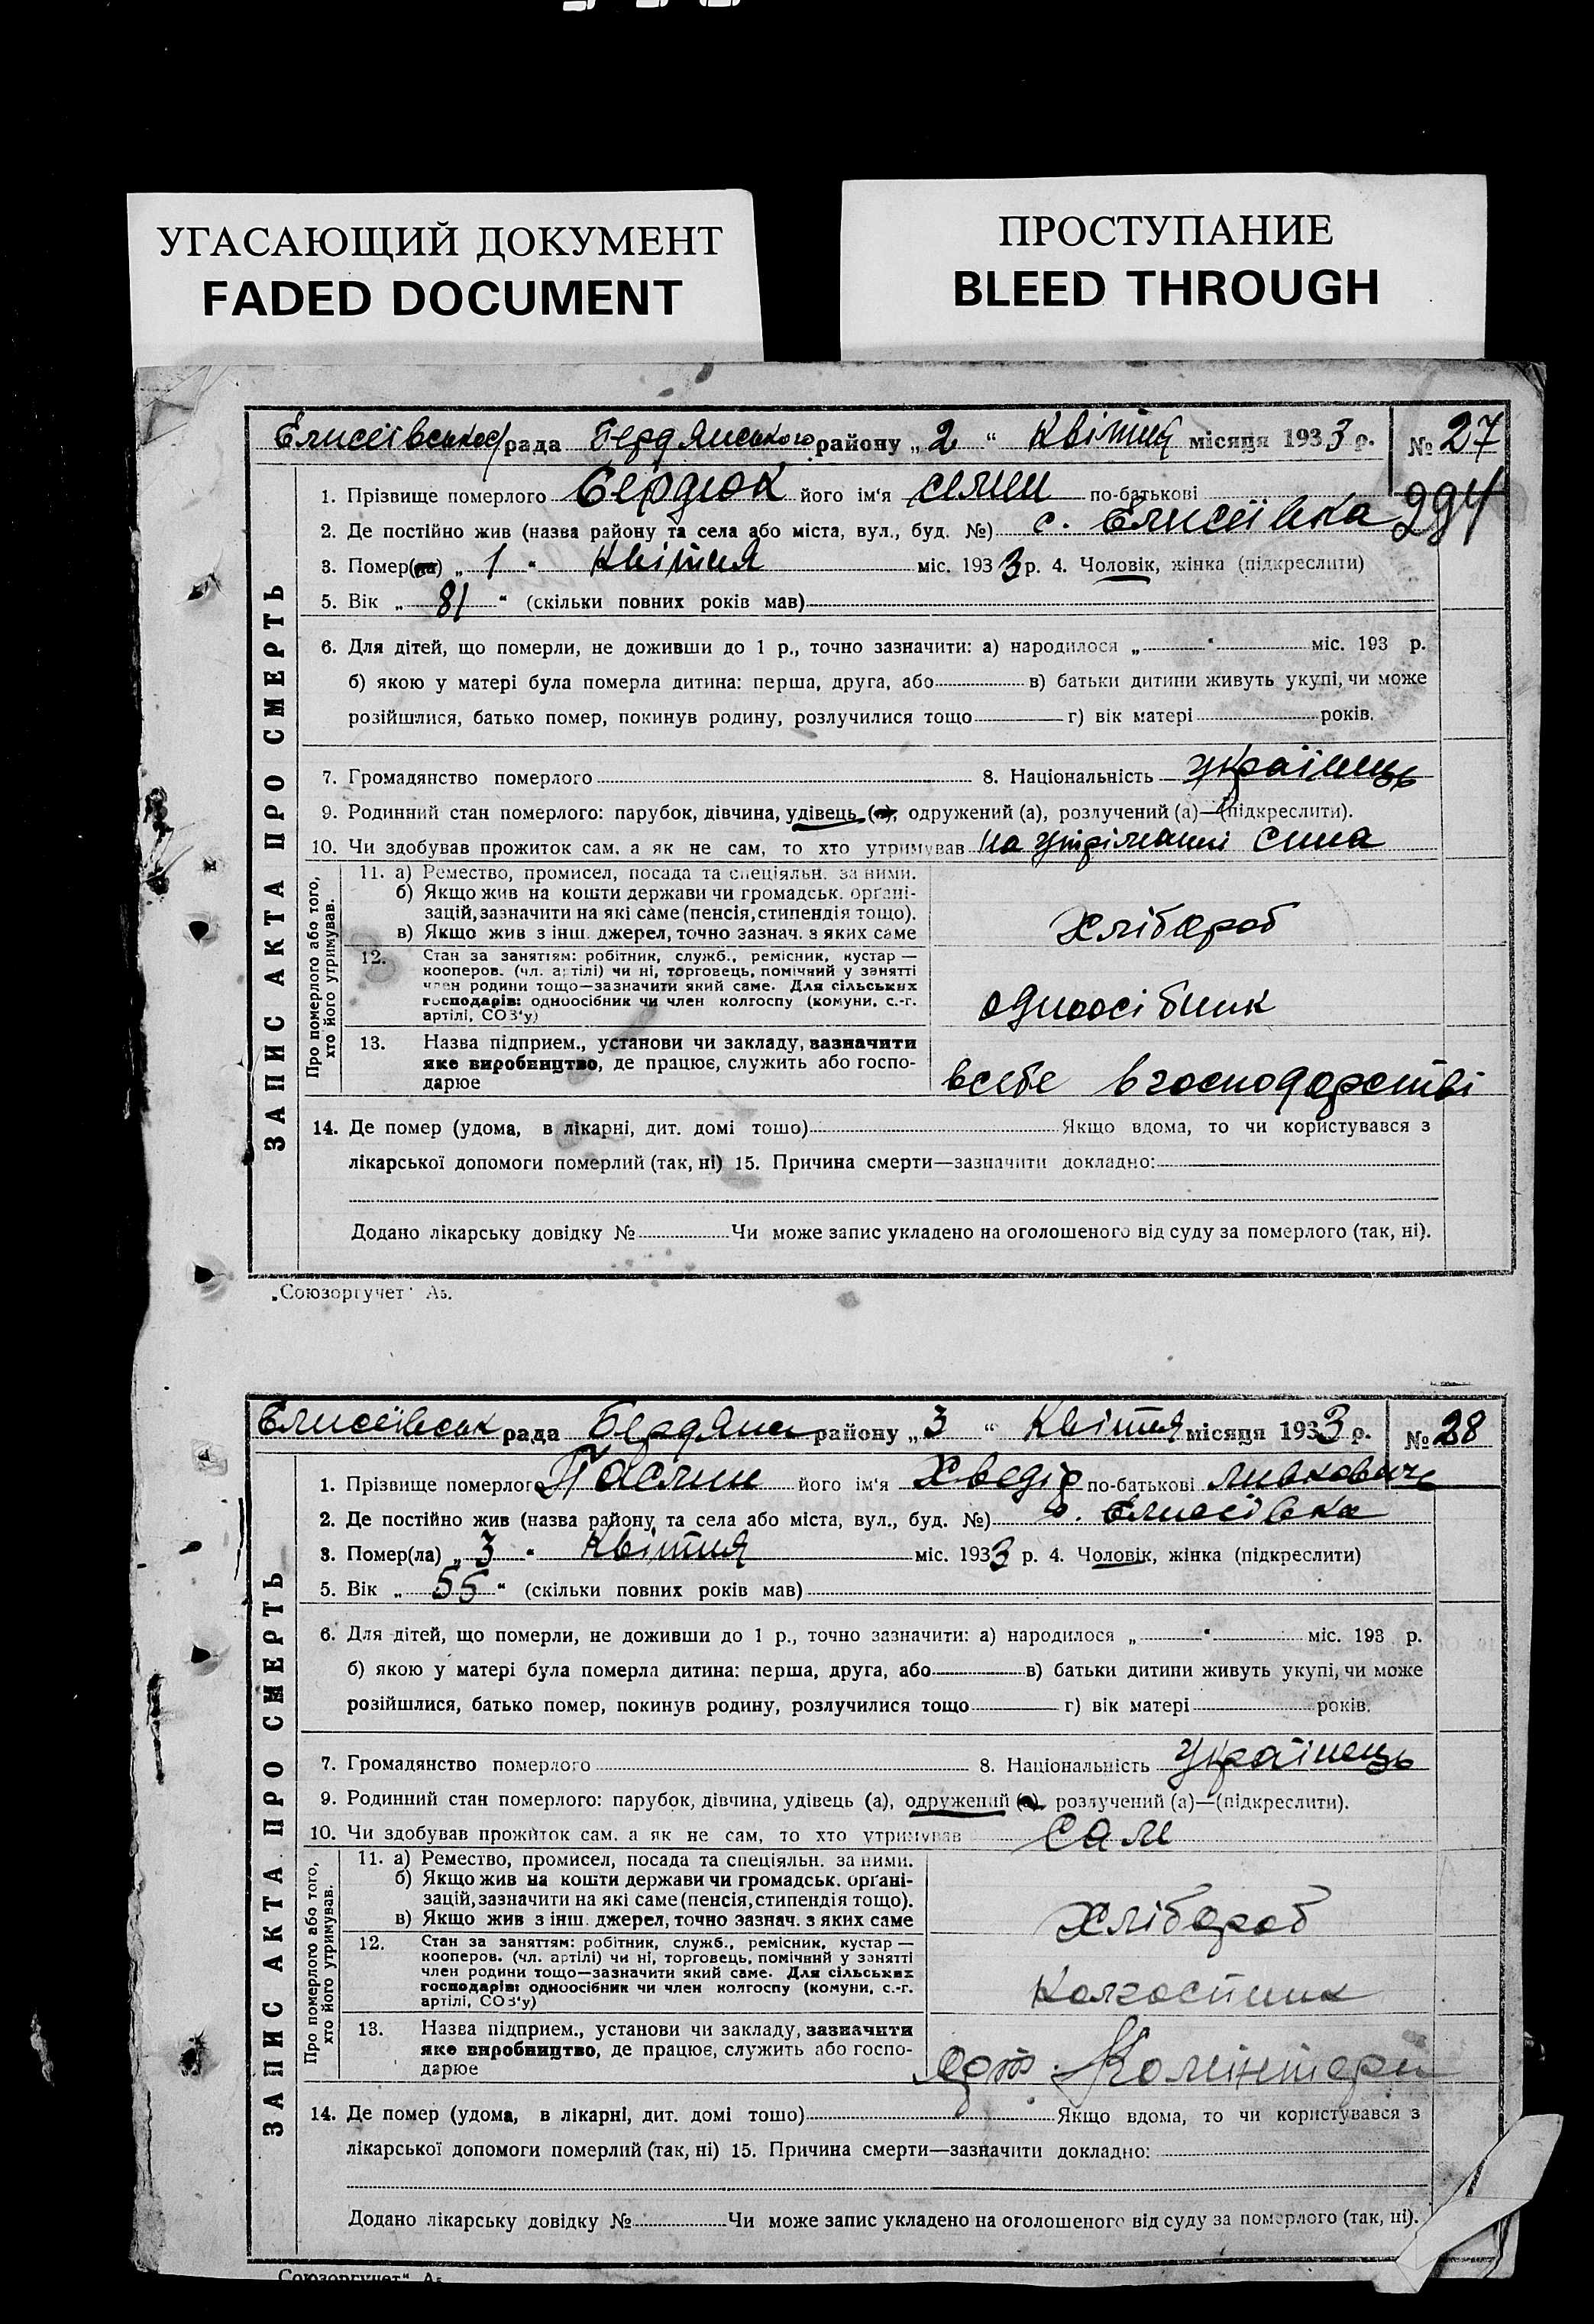 УГАСАЮЩИЙ ДОКУМЕНТ
FADED DOCUMENT
ПРОСТУПАНИЕ
BLEED THROUGH
ЗАПИС АКТА ПРО СМЕРТЬ
Елисеївської рада Бердянського району „2“ Квітня місяця 1933 р. № 27
1. Прізвище померлого Сердюк його ім'я по-батькові
294
2. Де постійно жив (назва району та села або міста, вул., буд. №) с. Елисеївка
3. Помер(ла) „1“ Квітня міс. 1933 р. 4. Чоловік, жінка (підкреслити)
5. Вік „81“ (скільки повних років мав)
6. Для дітей, що померли, не доживши до 1 р., точно зазначити: а) народилося „ “ міс. 193 р.
б) якою у матері була померла дитина: перша, друга, або в) батьки дитини живуть укупі, чи може
розійшлися, батько помер, покинув родину, розлучилися тощо г) вік матері років.
7. Громадянство померлого 8. Національність українець
9. Родинний стан померлого: парубок, дівчина, удівець (а), одружений (а), розлучений (а)—(підкреслити).
10. Чи здобував прожиток сам, а як не сам, то хто утримував на утріманні сина
Про померлого або того, хто його утримував.
11. а) Ремество, промисел, посада та спеціяльн. за ними.
б) Якщо жив на кошти держави чи громадськ. орґані-
зацій, зазначити на які саме (пенсія, стипендія тощо).
в) Якщо жив з інш. джерел, точно зазнач. з яких саме
хлібороб
12. Стан за заняттям: робітник, служб., ремісник, кустар —
кооперов. (чл. артілі) чи ні, торговець, помічний у занятті
член родини тощо—зазначити який саме. Для сільських
господарів: одноосібник чи член колгоспу (комуни, с.-г.
артілі, СОЗ'у)
одноосібник
13. Назва підприєм., установи чи закладу, зазначити
яке виробництво, де працює, служить або госпо-
дарює
всебе вгосподарстві
14. Де помер (удома, в лікарні, дит. домі тощо) Якщо вдома, то чи користувався з
лікарської допомоги померлий (так, ні) 15. Причина смерти—зазначити докладно:
Додано лікарську довідку № Чи може запис укладено на оголошеного від суду за померлого (так, ні).
„Союзоргучет“ А5.
ЗАПИС АКТА ПРО СМЕРТЬ
Елисеївськ рада Бердянс району „3“ Квітня місяця 1933 р. № 28
1. Прізвище померлого його ім'я Хведір по-батькові
2. Де постійно жив (назва району та села або міста, вул., буд. №) с. Елисеївка
3. Помер(ла) „3“ Квітня міс. 1933 р. 4. Чоловік, жінка (підкреслити)
5. Вік „55“ (скільки повних років мав)
6. Для дітей, що померли, не доживши до 1 р., точно зазначити: а) народилося „ “ міс. 193 р.
б) якою у матері була померла дитина: перша, друга, або в) батьки дитини живуть укупі, чи може
розійшлися, батько помер, покинув родину, розлучилися тощо г) вік матері років.
7. Громадянство померлого 8. Національність українець
9. Родинний стан померлого: парубок, дівчина, удівець (а), одружений (а), розлучений (а)—(підкреслити).
10. Чи здобував прожиток сам, а як не сам, то хто утримував сам
Про померлого або того, хто його утримував.
11. а) Ремество, промисел, посада та спеціяльн. за ними.
б) Якщо жив на кошти держави чи громадськ. орґані-
зацій, зазначити на які саме (пенсія, стипендія тощо).
в) Якщо жив з інш. джерел, точно зазнач. з яких саме
хлібороб
12. Стан за заняттям: робітник, служб., ремісник, кустар —
кооперов. (чл. артілі) чи ні, торговець, помічний у занятті
член родини тощо—зазначити який саме. Для сільських
господарів: одноосібник чи член колгоспу (комуни, с.-г.
артілі, СОЗ'у)
Колгоспник
13. Назва підприєм., установи чи закладу, зазначити
яке виробництво, де працює, служить або госпо-
дарює
арт. Комінтерн
14. Де помер (удома, в лікарні, дит. домі тощо) Якщо вдома, то чи користувався з
лікарської допомоги померлий (так, ні) 15. Причина смерти—зазначити докладно:
Додано лікарську довідку № Чи може запис укладено на оголошеного від суду за померлого (так, ні).
Союзоргучет“ А5